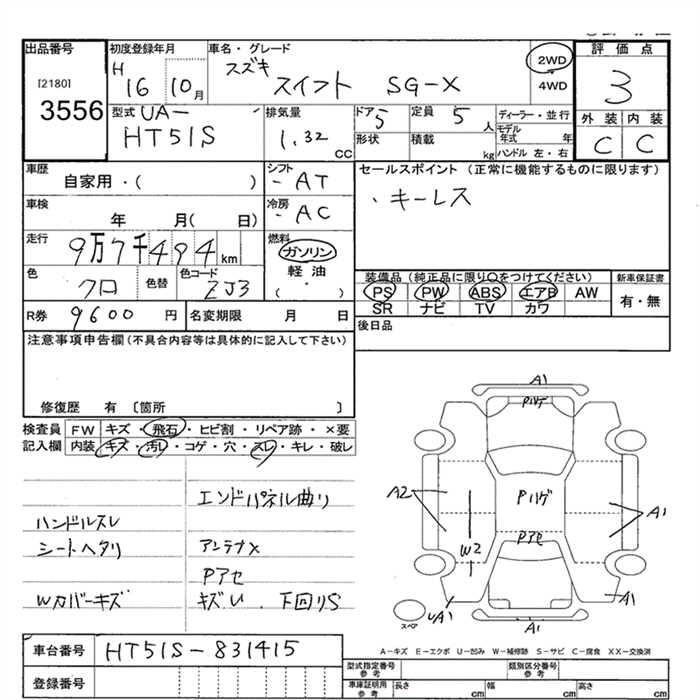 出品番号
[2180]
3556
初度登録年月
H 16 10月
車名・グレード
スズキ スイフト SG-X
2WD
4WD
評価点
3
型式 UA-
HT51S
排気量
1.32 CC
ドア 5
形状
定員 5人
積載 kg
ディーラー・並行
モデル年式 年
ハンドル 左・右
外装 内装
C C
車歴
自家用・( )
シフト
- AT
セールスポイント(正常に機能するものに限ります)
・キーレス
車検
年 月( 日)
冷房
- AC
走行
9万7千494km
燃料
ガソリン
軽油
( ・ )
色
クロ
色替
色コード
ZJ3
装備品(純正品に限り○をつけてください)
新車保証書
PS PW ABS エアB AW
有・無
SR ナビ TV カワ
R券 9600 円
名変期限 月 日
後日品
注意事項申告欄(不具合内容等は具体的に記入して下さい)
修復歴 有 〔箇所 〕
検査員 FW キズ・飛石・ヒビ割・リペア跡・×要
記入欄 内装 キズ・汚レ・コゲ・穴・スレ・キレ・破レ
エンドパネル曲り
ハンドルスレ
シートヘタリ
アンテナ×
Pアセ
Wカバーキズ
キズU. 下回りS
A1
Pハゲ
A2
Pハゲ
A1
W2
Pアセ
UA1
A1
A1
スペア
A-キズ E-エクボ U-凹み W-補修跡 S-サビ C-腐食 XX-交換済
車台番号 HT51S-831415
登録番号
型式指定番号
参考
類別区分番号
参考
車庫証明用
参考
長さ cm 幅 cm 高さ cm